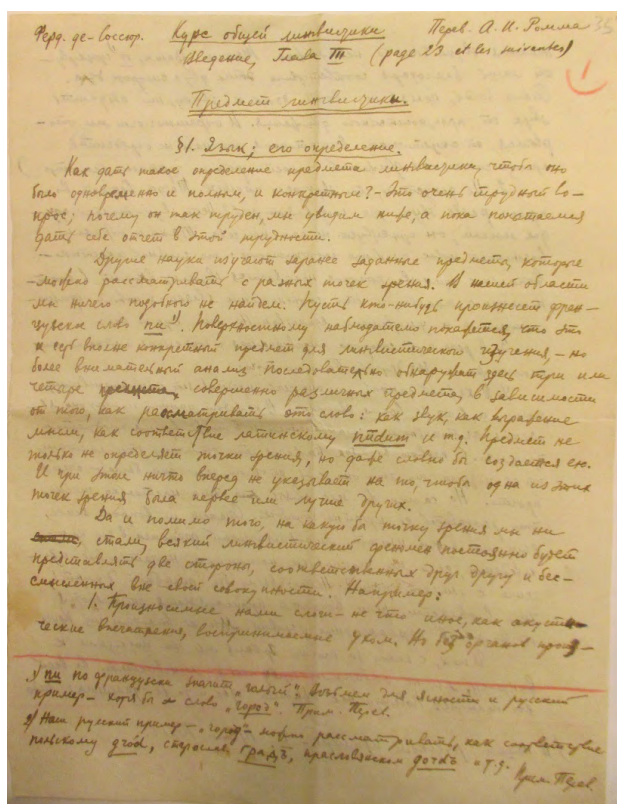 Ферд. де-Соссюр. Курс общей лингвистики Перев. А. И. Ромма 35
Введение, Глава III (page 23 et les suivantes)
1
Предмет лингвистики.
§1. Язык; его определение.
Как дать такое определение предмета лингвистики, чтобы оно
было одновременно и полным, и конкретным? – Это очень трудный во-
прос; почему он так труден, мы увидим ниже, а пока попытаемся
дать себе отчет в этой трудности.
Другие науки изучают заранее заданные предметы, которые
можно рассматривать с разных точек зрения. В нашей области
мы ничего подобного не найдем. Пусть кто-нибудь произнесет фран-
цузское слово nu 1). Поверхностному наблюдателю покажется, что это
и есть вполне конкретный предмет для лингвистического изучения, – но
более внимательный анализ последовательно обнаружит здесь три или
четыре предмета, совершенно различных предмета, в зависимости
от того, как рассматривать это слово: как звук, как выражение
мысли, как соответствие латинскому nūdum и т.д. Предмет не
только не определяет точки зрения, но даже словно бы создается ею.
И при этом ничто вперед не указывает на то, чтобы одна из этих
точек зрения была первее или лучше других.
Да и помимо того, на какую бы точку зрения мы ни
стали, всякий лингвистический феномен постоянно будет
представлять две стороны, соответственных друг другу и бес-
смысленных вне своей совокупности. Например:
1. Произносимые нами слоги – не что иное, как акусти-
ческие впечатления, воспринимаемые ухом. Но без органов произ-
1) nu по французски значит „голый". Возьмем для ясности и русский
пример – хотя бы слово „город". Прим. Перев.
2) Наш русский пример – „город" – можно рассматривать, как соответствие
польскому gród, старослав. градъ, праславянском
Прим. Перев.